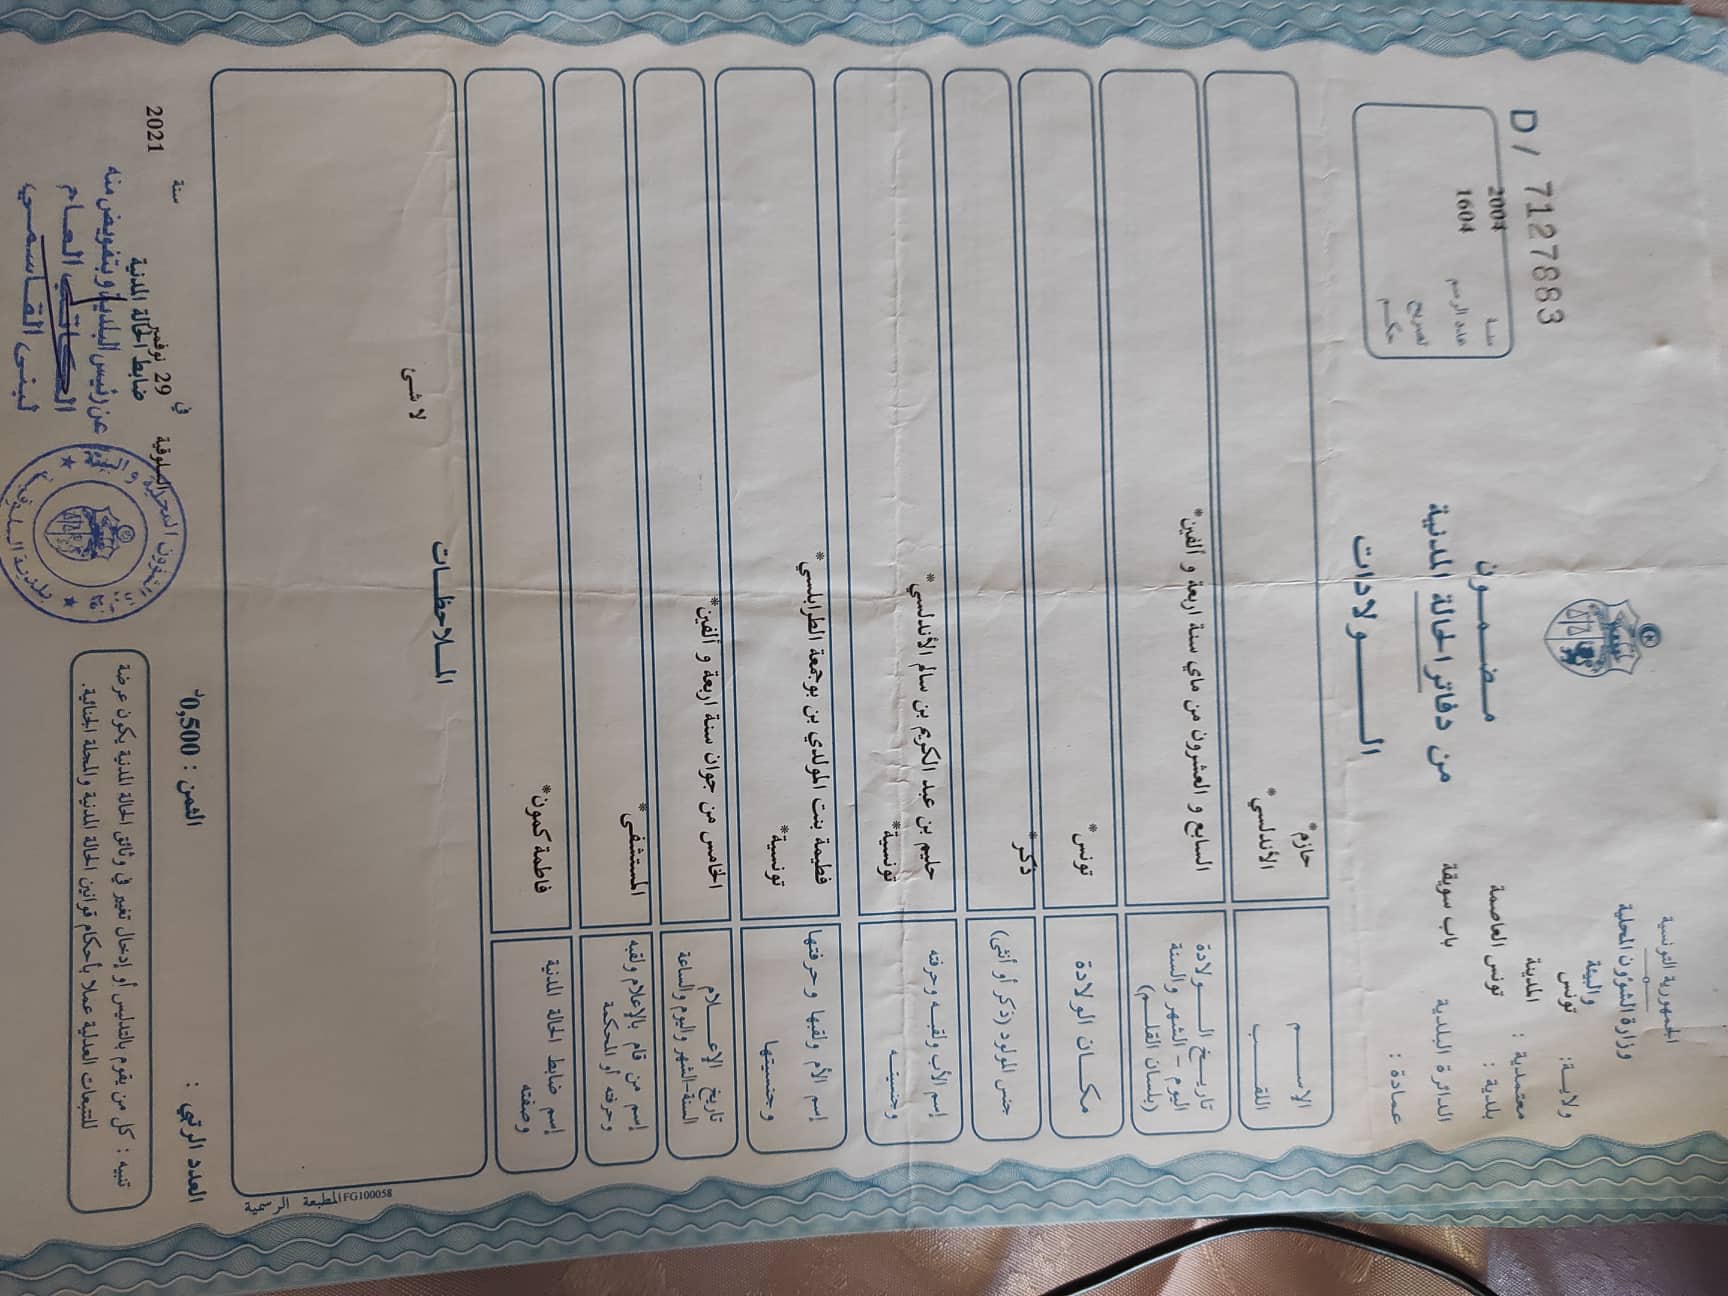 الجمهورية التونسية
وزارة الشؤون المحلية
والبيئة
ولايـة: تونس
معتمدية : المدينة
بلدية : تونس العاصمة
الدائرة البلدية باب سويقة
عمادة :
مـضـمـون
من دفاتر الحالة المدنية
الـــولادات
D / 7127883
سنة 2004
عدد الرسم 1604
تصريح
حكم
الإســـم حازم*
اللقــب الأندلسي*
تاريـخ الـــولادة
اليوم – الشهر والسنة السابع و العشرون من ماي سنة اربعة و ألفين*
(بلسان القلـم)
مكــان الولادة تونس*
جنس المولود (ذكر أو أنثى) ذكر*
إسم الأب ولقبـه وحرفته حليم بن عبد الكريم بن سالم الأندلسي*
وجنسيتـه تونسية*
إسم الأم ولقبها وحرفتها فطيمة بنت المولدي بن بوجمعة الطرابلسي*
وجنسيتها تونسية*
تاريخ الإعـــلام الخامس من جوان سنة اربعة و ألفين*
السنة-الشهر واليوم والساعة
إسم من قام بالإعلام ولقبه المستشفى*
وحرفته أو المحكمة
إسم ضابط الحالة المدنية فاطمة كمون*
وصفته
المـلاحظـات
لا شئ
FG100058 المطبعة الرسمية
العدد الرتبي : الثمن : 0,500د
السلوقية في 29 نوفمبر سنة 2021
ضابط الحالة المدنية
عن رئيس البلدية وبتفويض منه
الكاتب العام
لبنى القاسمي
تنبيه : كل من يقوم بالتدليس أو إدخال تغيير في وثائق الحالة المدنية يكون عرضة
للتتبعات العدلية عملا بأحكام قوانين الحالة المدنية والمجلة الجنائية.